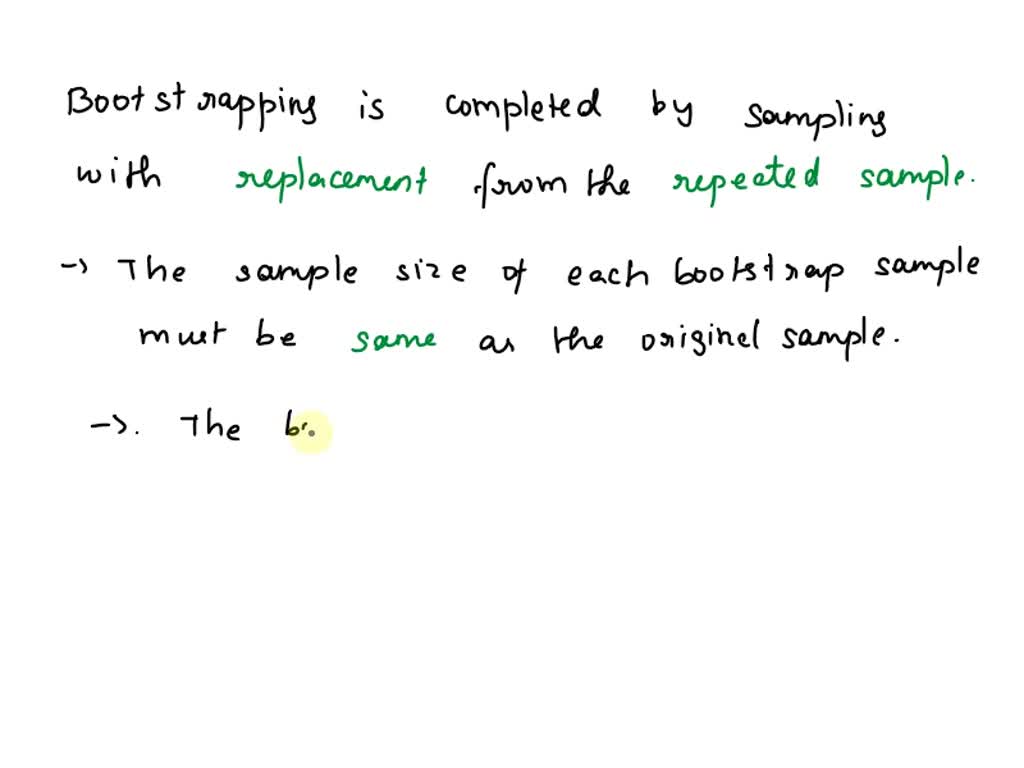 Bootstrapping is completed by sampling
with replacement from the repeated sample.
-> The sample size of each bootstrap sample
must be same as the original sample.
->. The